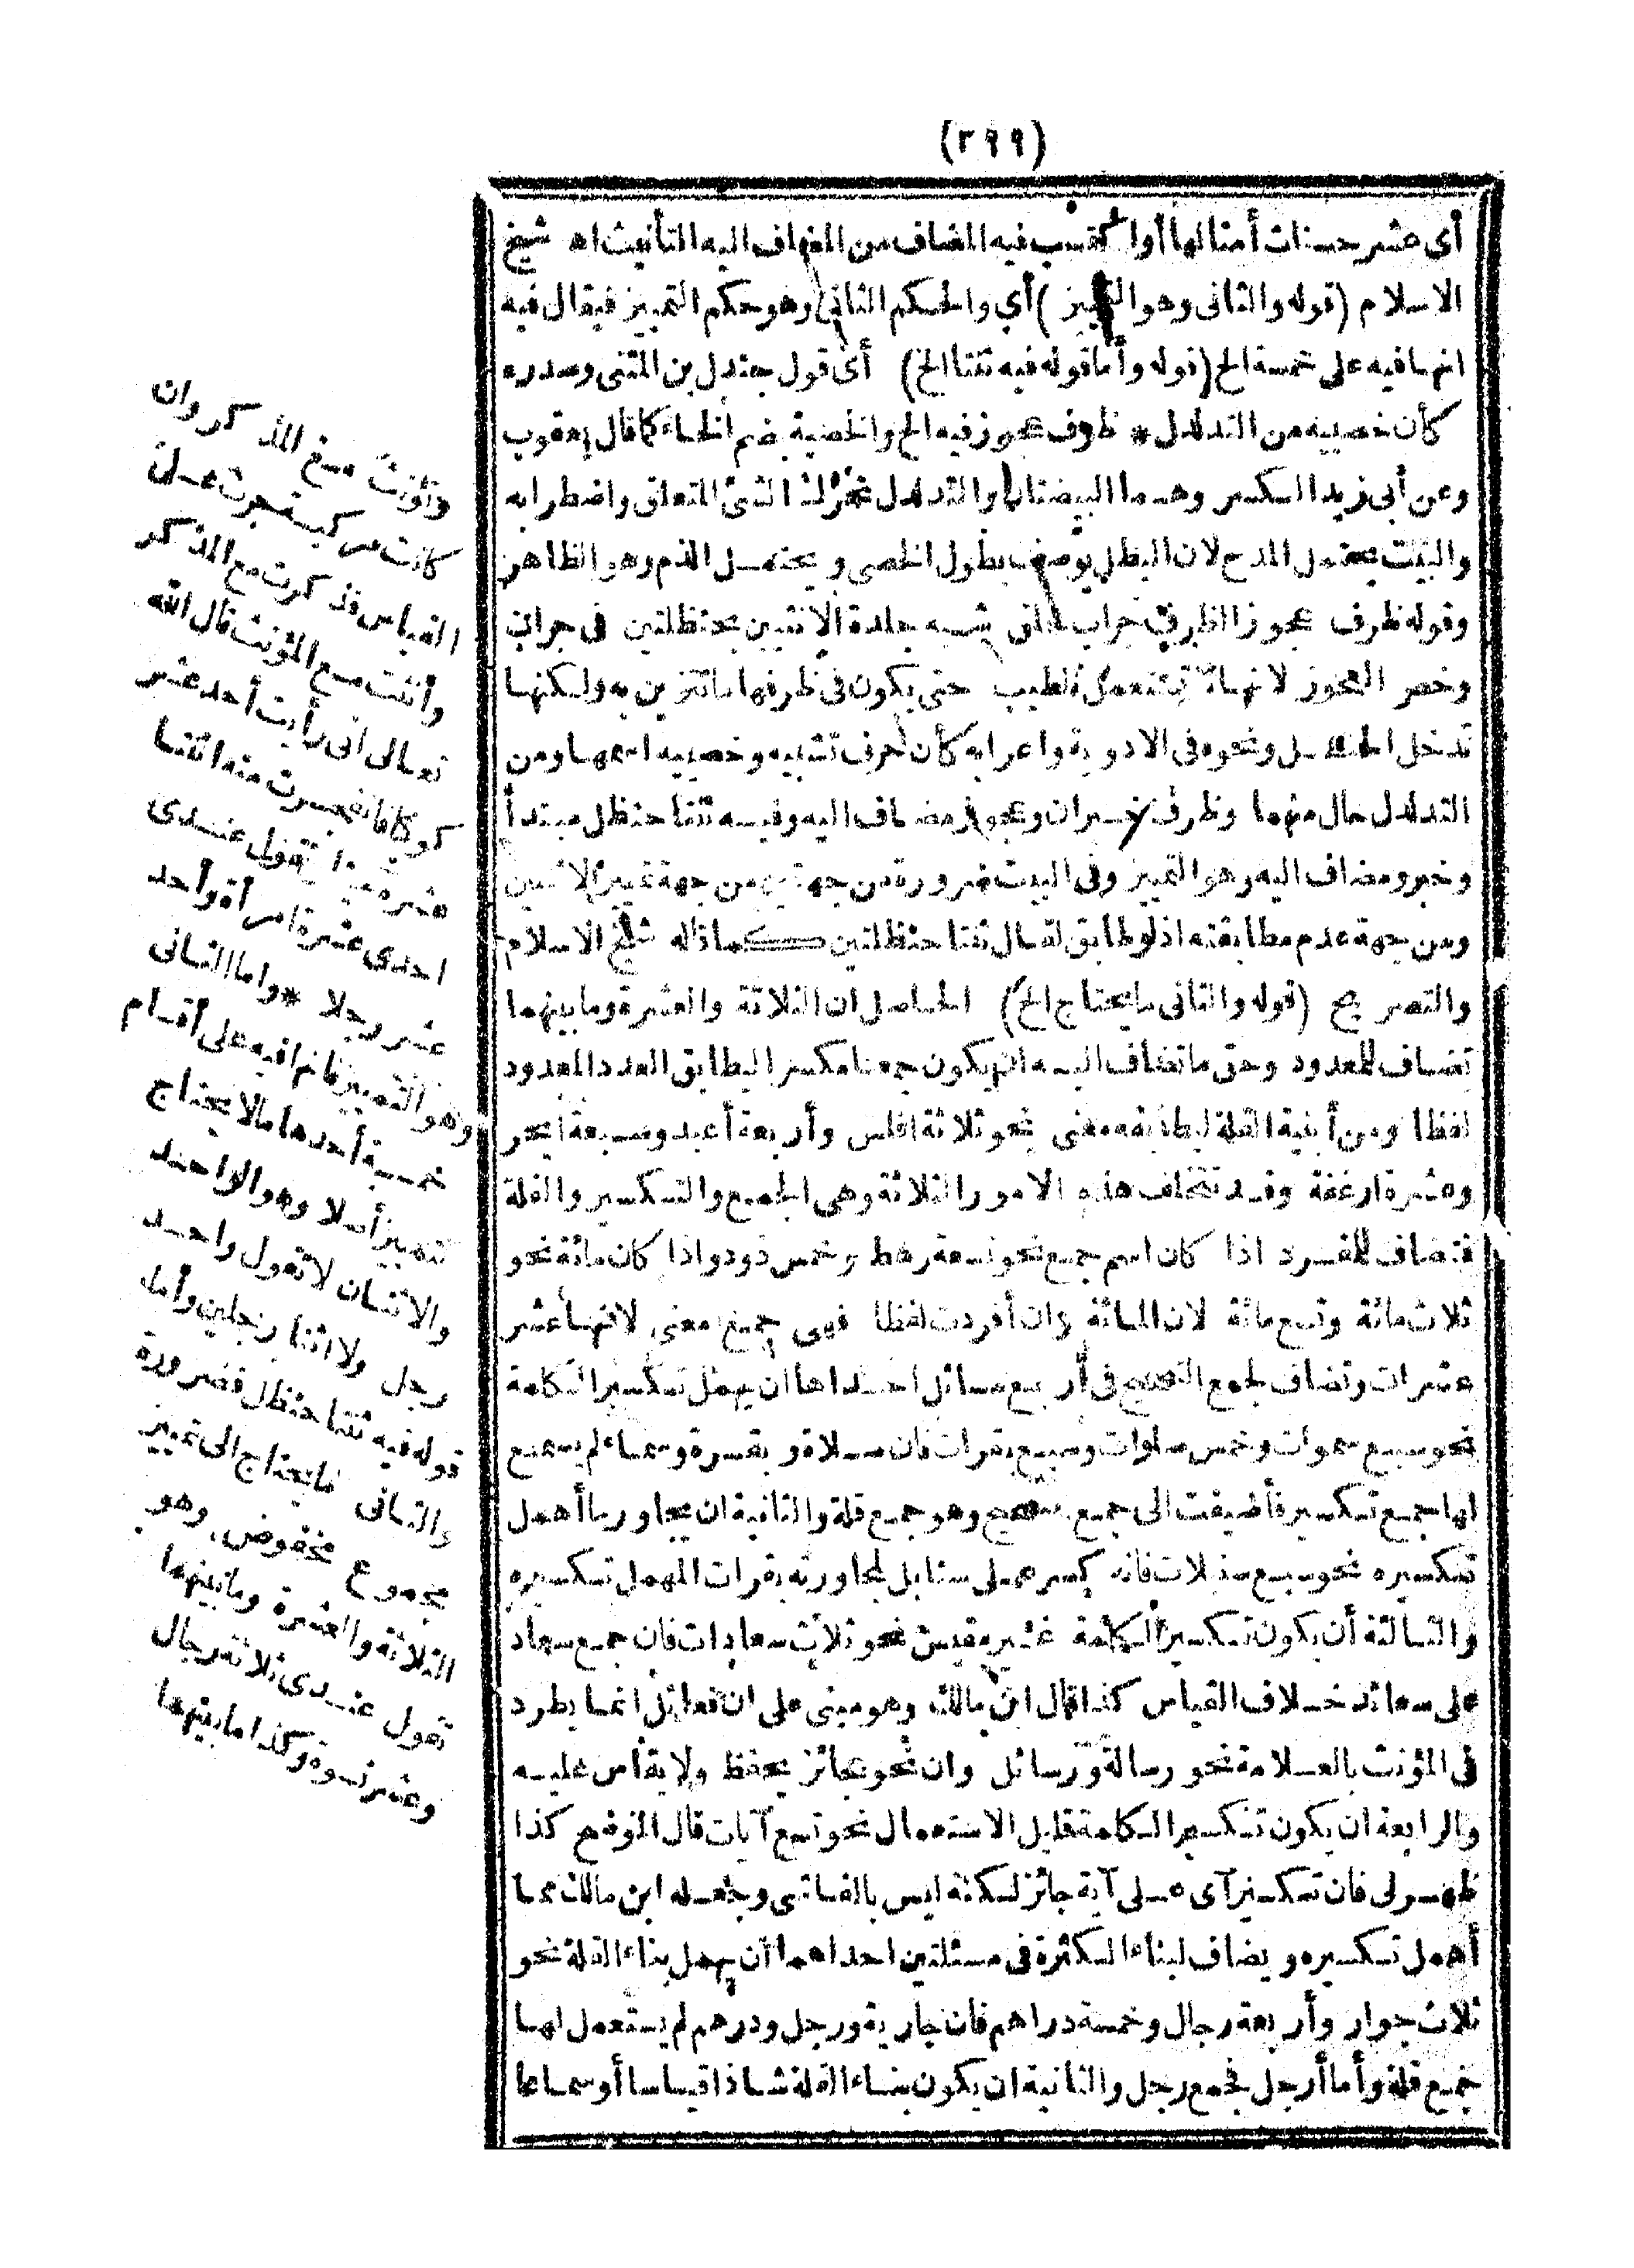 (٢٩٩)
أى عشر حسنات أمثالها أو اكتسب فيه المضاف من المضاف اليه التأنيث اه شيخ
الاسلام (قوله والثانى وهو التمييز) أى والحكم الثانى وهو حكم التمييز فيقال فيه
انها فيه على خمسة الخ (قوله وأما قوله فيه ثنتا الخ) أى قول جندل بن المثنى وصدره
كأن خصييه من التدلدل * ظرف عجوز فيه الخ والخصية بضم الخاء كما قال يعقوب
وعن أبى زيد الكسر وهما البيضتان والتدلدل تحرك الشئ المتعلق واضطرابه
والبيت يحتمل المدح لان البطل يوصف بطول الخصى ويحتمل الذم وهو الظاهر
وقوله ظرف عجوز الظرف جراب خلق شبه جلدة الانثيين بحنظلتين فى جراب
وخص العجوز لانها لا تستعمل الطيب حتى يكون فى ظرفها ما تتزين به ولكنها
تدخل الحنظل ونحوه فى الادوية واعرابه كأن حرف تشبيه وخصييه اسمها ومن
التدلدل حال منهما وظرف خبر ان وعجوز مضاف اليه وفيه ثنتا حنظل مبتدأ
وخبر ومضاف اليه وهو التمييز وفى البيت ضرورة من جهتين من جهة تمييز الاثنين
ومن جهة عدم مطابقته اذ لو طابق لقال ثنتا حنظلتين كما قاله شيخ الاسلام
والتصريح (قوله والثانى ما يحتاج الخ) الحاصل ان الثلاثة والعشرة وما بينهما
تضاف للمعدود وحق ما تضاف اليه ان يكون جمعا مكسرا ليطابق العدد المعدود
لفظا ومن أبنية القلة ليطابقه معنى نحو ثلاثة افلس وأربعة أعبد وسبعة ابحر
وعشرة ارغفة وقد تتخلف هذه الامور الثلاثة وهى الجمع والتكسير والقلة
فتضاف للمفرد اذا كان اسم جمع نحو تسعة رهط وخمس ذود واذا كان مائة نحو
ثلاث مائة وتسع مائة لان المائة وان أفردت لفظا فهى جمع معنى لانها عشر
عشرات وتضاف لجمع التصحيح فى أربع مسائل احداها ان يهمل تكسير الكلمة
نحو سبع سموات وخمس صلوات وسبع بقرات فان صلاة وبقرة وسماء لم يسمع
لها جمع تكسير فأضيفت الى جمع صحيح وهو جمع قلة والثانية ان يجاور ما أهمل
تكسيره نحو سبع سنبلات فانه كسر على سنابل لمجاورته بقرات المهمل تكسيره
والثالثة أن يكون تكسير الكلمة غير مقيس نحو ثلاث سعادات فان جمع سعاد
على سعائد خلاف القياس كذا قال ابن مالك وهو مبنى على ان فعائل انما يطرد
فى المؤنث بالعلامة نحو رسالة ورسائل وان نحو عجائز يحفظ ولا يقاس عليه
والرابعة ان يكون تكسير الكلمة قليل الاستعمال نحو تسع آيات قال الموضح كذا
ظهر لى فان تكسير آى على آية جائز لكنه ليس بالفاشى وجعله ابن مالك مما
أهمل تكسيره ويضاف لبناء الكثرة فى مسئلتين احداهما أن يهمل بناء القلة نحو
ثلاث جوار وأربعة رجال وخمسة دراهم فان جارية ورجل ودرهم لم يستعمل لها
جمع قلة وأما أرجل فجمع رجل والثانية ان يكون بناء القلة شاذا قياسا أو سماعا
وتؤنث مع المذكر وان
كانت مركبة جرت على
القياس فذكرت مع المذكر
وأنثت مع المؤنث قال الله
تعالى انى رأيت أحد عشر
كوكبا فانفجرت منه اثنتا
عشرة عينا تقول عندى
احدى عشرة امرأة وأحد
عشر رجلا * واما الثانى
وهو التمييز فانها فيه على أقسام
خمسة أحدها ما لا يحتاج
تمييز أصلا وهو الواحد
والاثنان لا تقول واحد
رجل ولا اثنا رجلين وأما
قوله فيه ثنتا حنظل فضرورة
والثانى ما يحتاج الى تمييز
مجموع مخفوض، وهو
الثلاثة والعشرة وما بينهما
تقول عندى ثلاثة رجال
وعشر نسوة وكذا ما بينهما